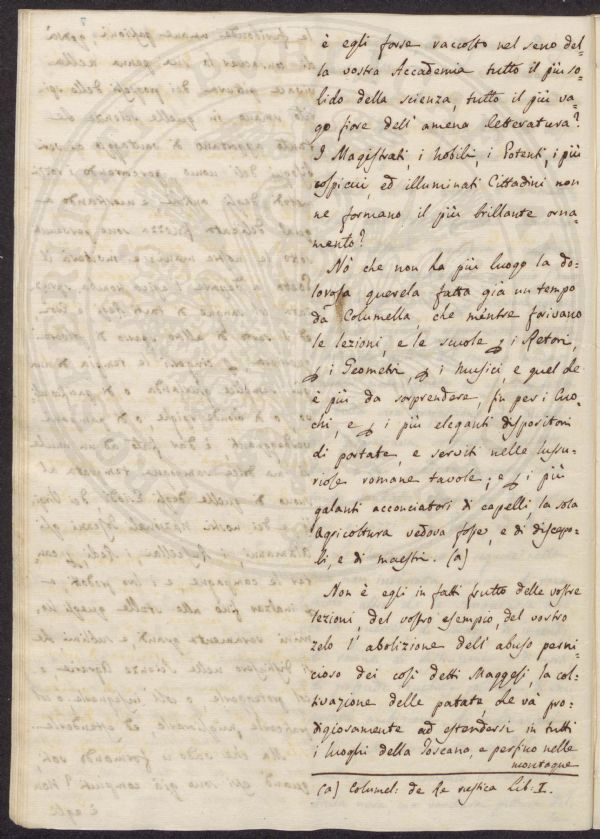 è egli forse raccolto nel seno del=
la vostra Accademia tutto il più so=
lido della scienza, tutto il più va=
go fiore dell'amena letteratura?
I Magistrati, i Nobili, i Potenti, i più
cospicui, ed illuminati Cittadini non
ne formano il più brillante orna=
mento?
Nò che non ha più luogo la do=
lorosa querela fatta già un tempo
da Columella, che mentre fiorivano
le lezioni, e le scuole p i Retori,
p i Geometri, p i Musici, e quel che
è più da sorprendere, fin per i Cuo=
chi, e p i più eleganti dispositori
di portate, e serviti nelle lussu=
riose romane tavole; e p i più
galanti acconciatori di capelli, la sola
Agricoltura vedova fosse, e di discepo=
li, e di maestri. (a)
Non è egli in fatti frutto delle vostre
lezioni, del vostro esempio, del vostro
zelo l'abolizione dell'abuso perni=
cioso dei così detti Maggesi, la col=
tivazione delle patate, che và pro=
digiosamente ad estendersi in tutti
i luoghi della Toscana, e persino nelle
montagne
(a) Columel: de Re rustica Lib: I.